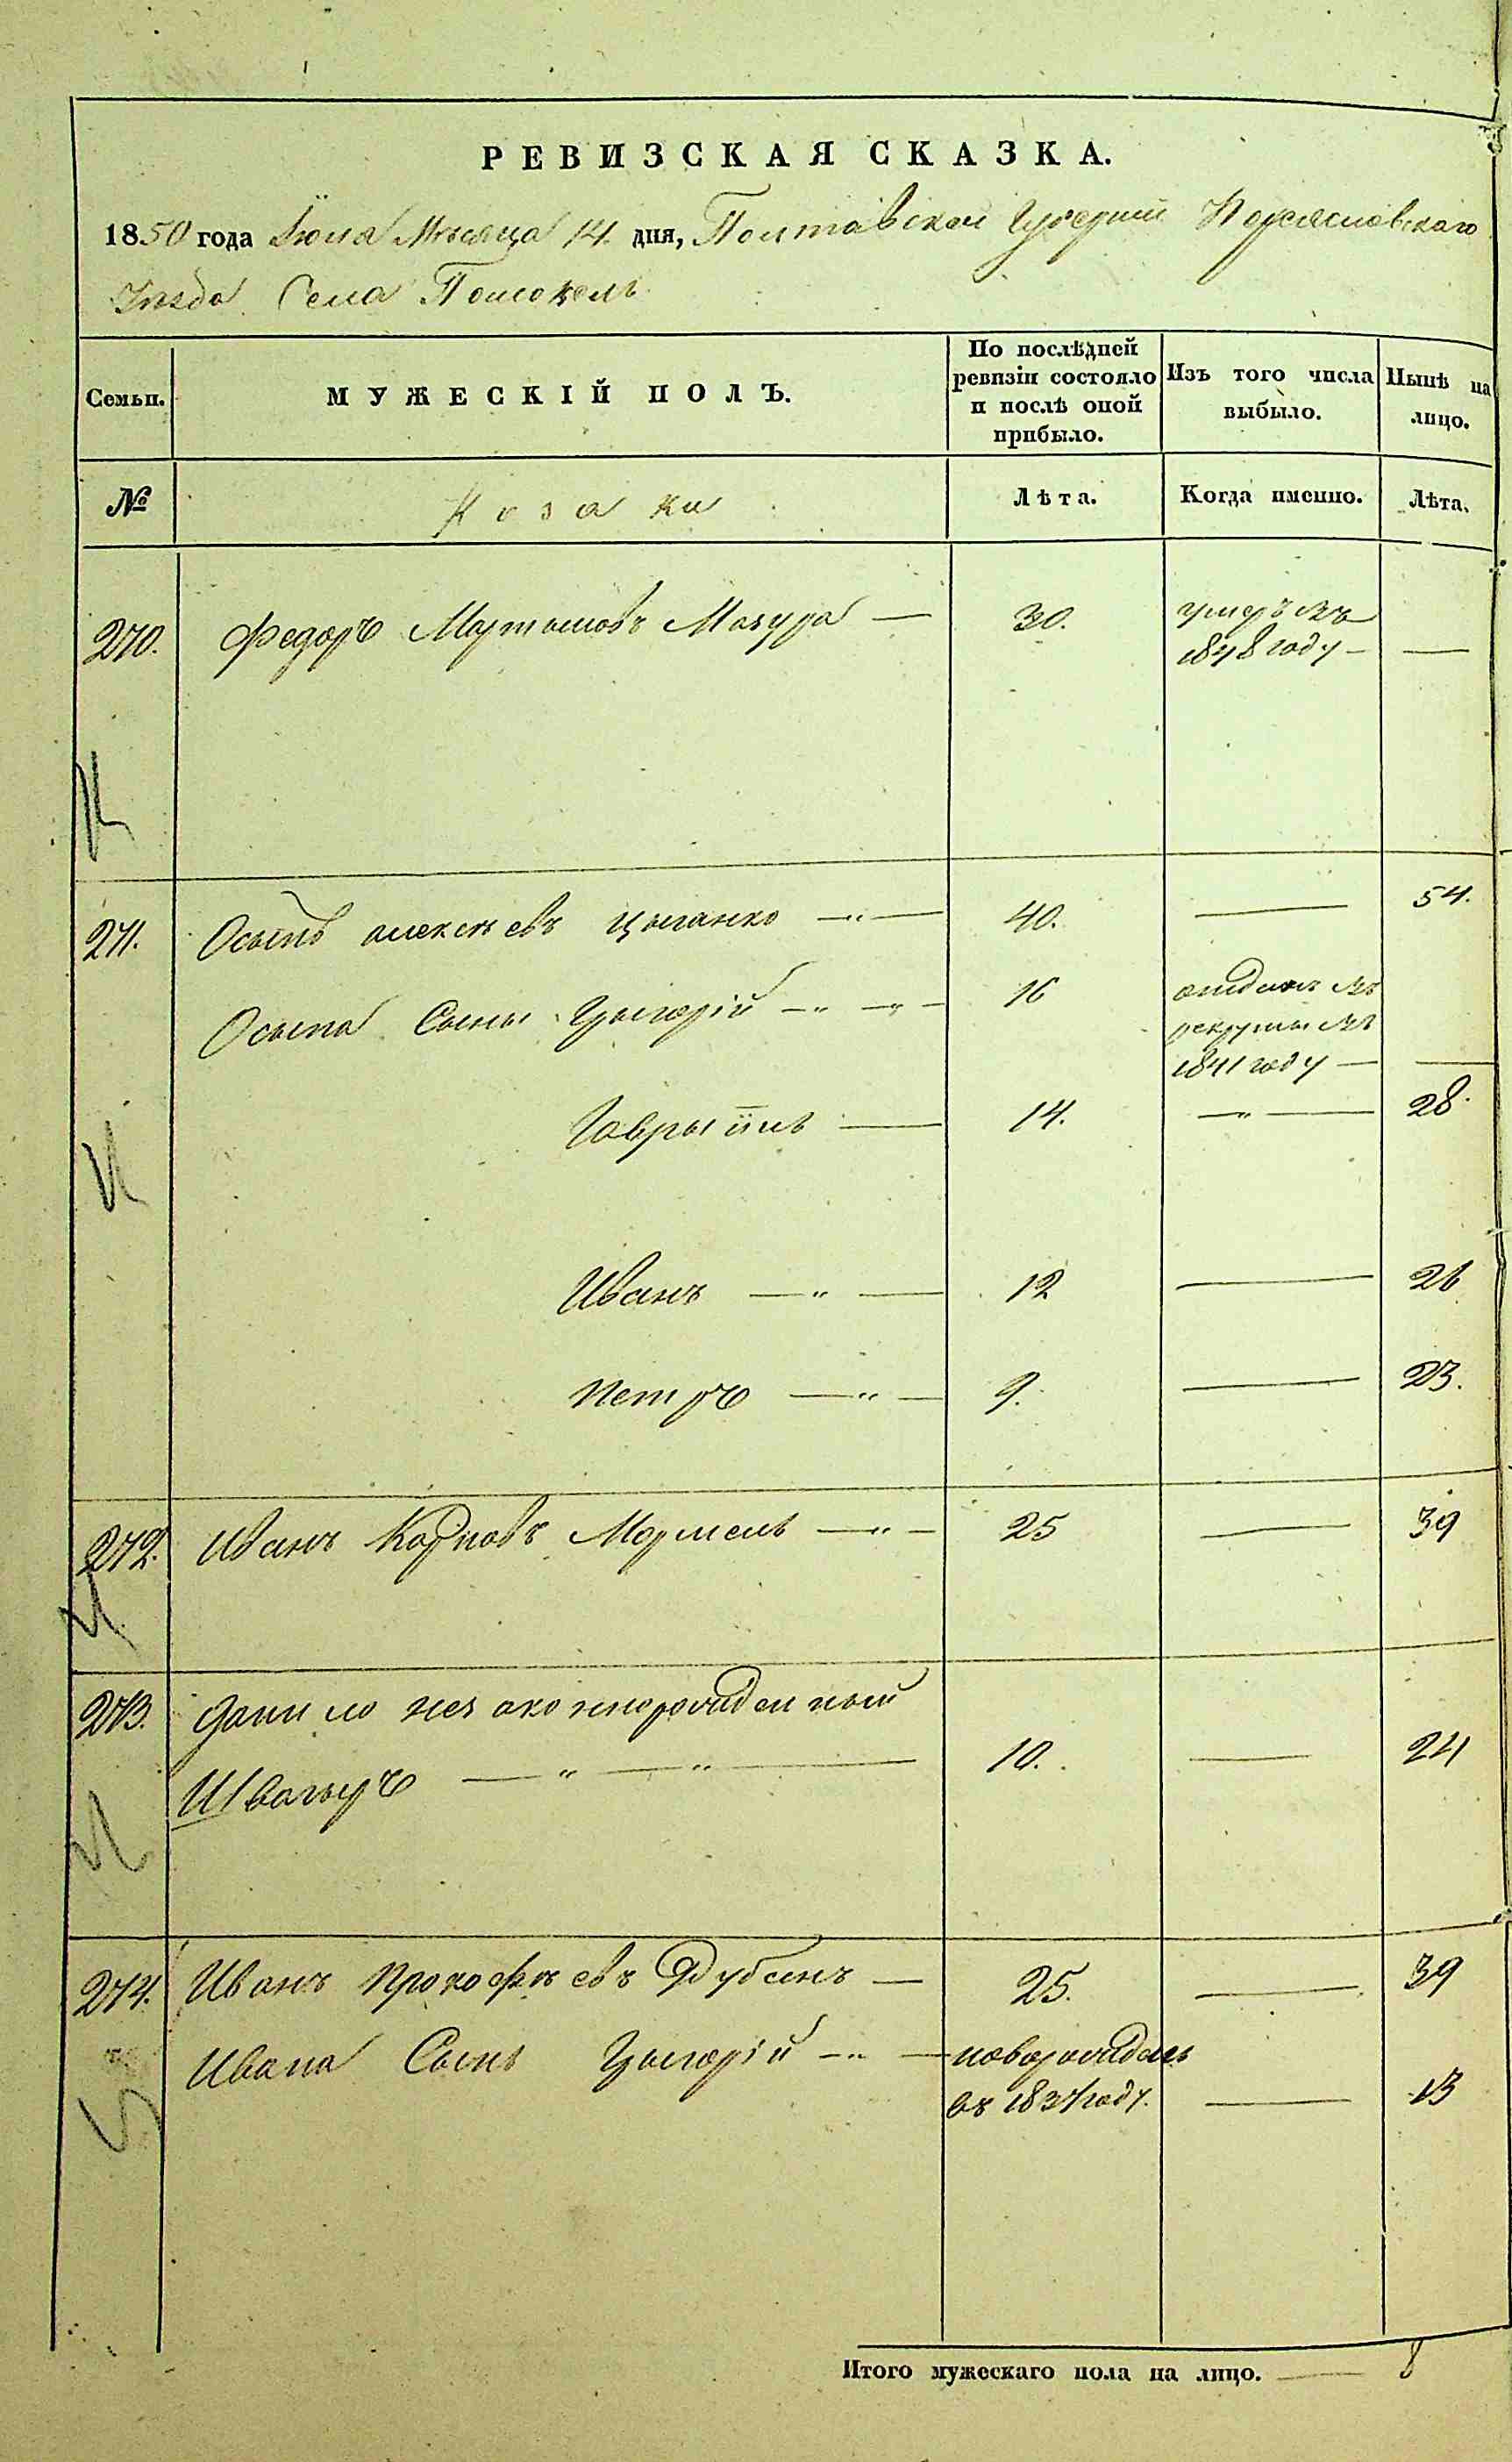 РЕВИЗСКАЯ СКАЗКА.
1850 года Іюля Мѣсяца 14. дня, Полтавской Губерніи Переясловскаго
Уѣзда Села Помокель
Семьи.
МУЖЕСКІЙ ПОЛЪ.
По послѣдней ревизіи состояло и послѣ оной прибыло.
Изъ того числа выбыло.
Нынѣ на лицо.
№
Козаки
Лѣта.
Когда именно.
Лѣта.
270. Федоръ Мартыновъ Мазура — 30. умеръ въ
1848 году — —
271. Осыпъ алексѣевъ цыганко —„— 40. — 54.
Осыпа Сыны Григорій —„ —„— 16 отданъ въ
рекруты въ
1841 году — —
Гаврыіилъ — 14. —„— 28.
Иванъ —„— 12 — 26
Петръ —„— 9. — 23.
272. Иванъ Карповъ Мармель —„— 25 — 39
273. Данило незаконнорожденный
Швагыръ —„—„— 10. — 24
274. Иванъ Прокофѣевъ Дубынъ — 25. — 39
Ивана Сынъ Григорій —„— новорожденъ
въ 1837 году. — 13
Итого мужескаго пола на лицо. — 8